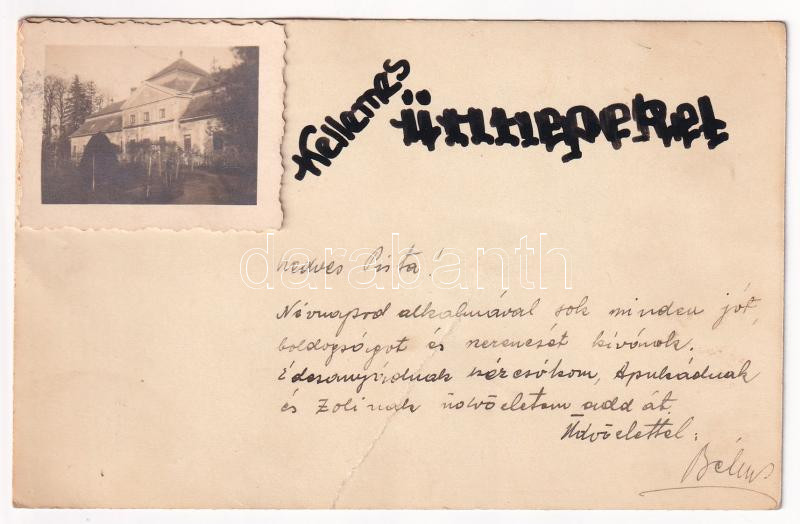 Kellemes
ünnepeket
Kedves Pista!
Névnapod alkalmával sok minden jót,
boldogságot és szerencsét kívánok.
Édesanyádnak kézcsókom, Apukádnak
és Zolinak üdvözletem add át.
Üdvözlettel:
darabanth